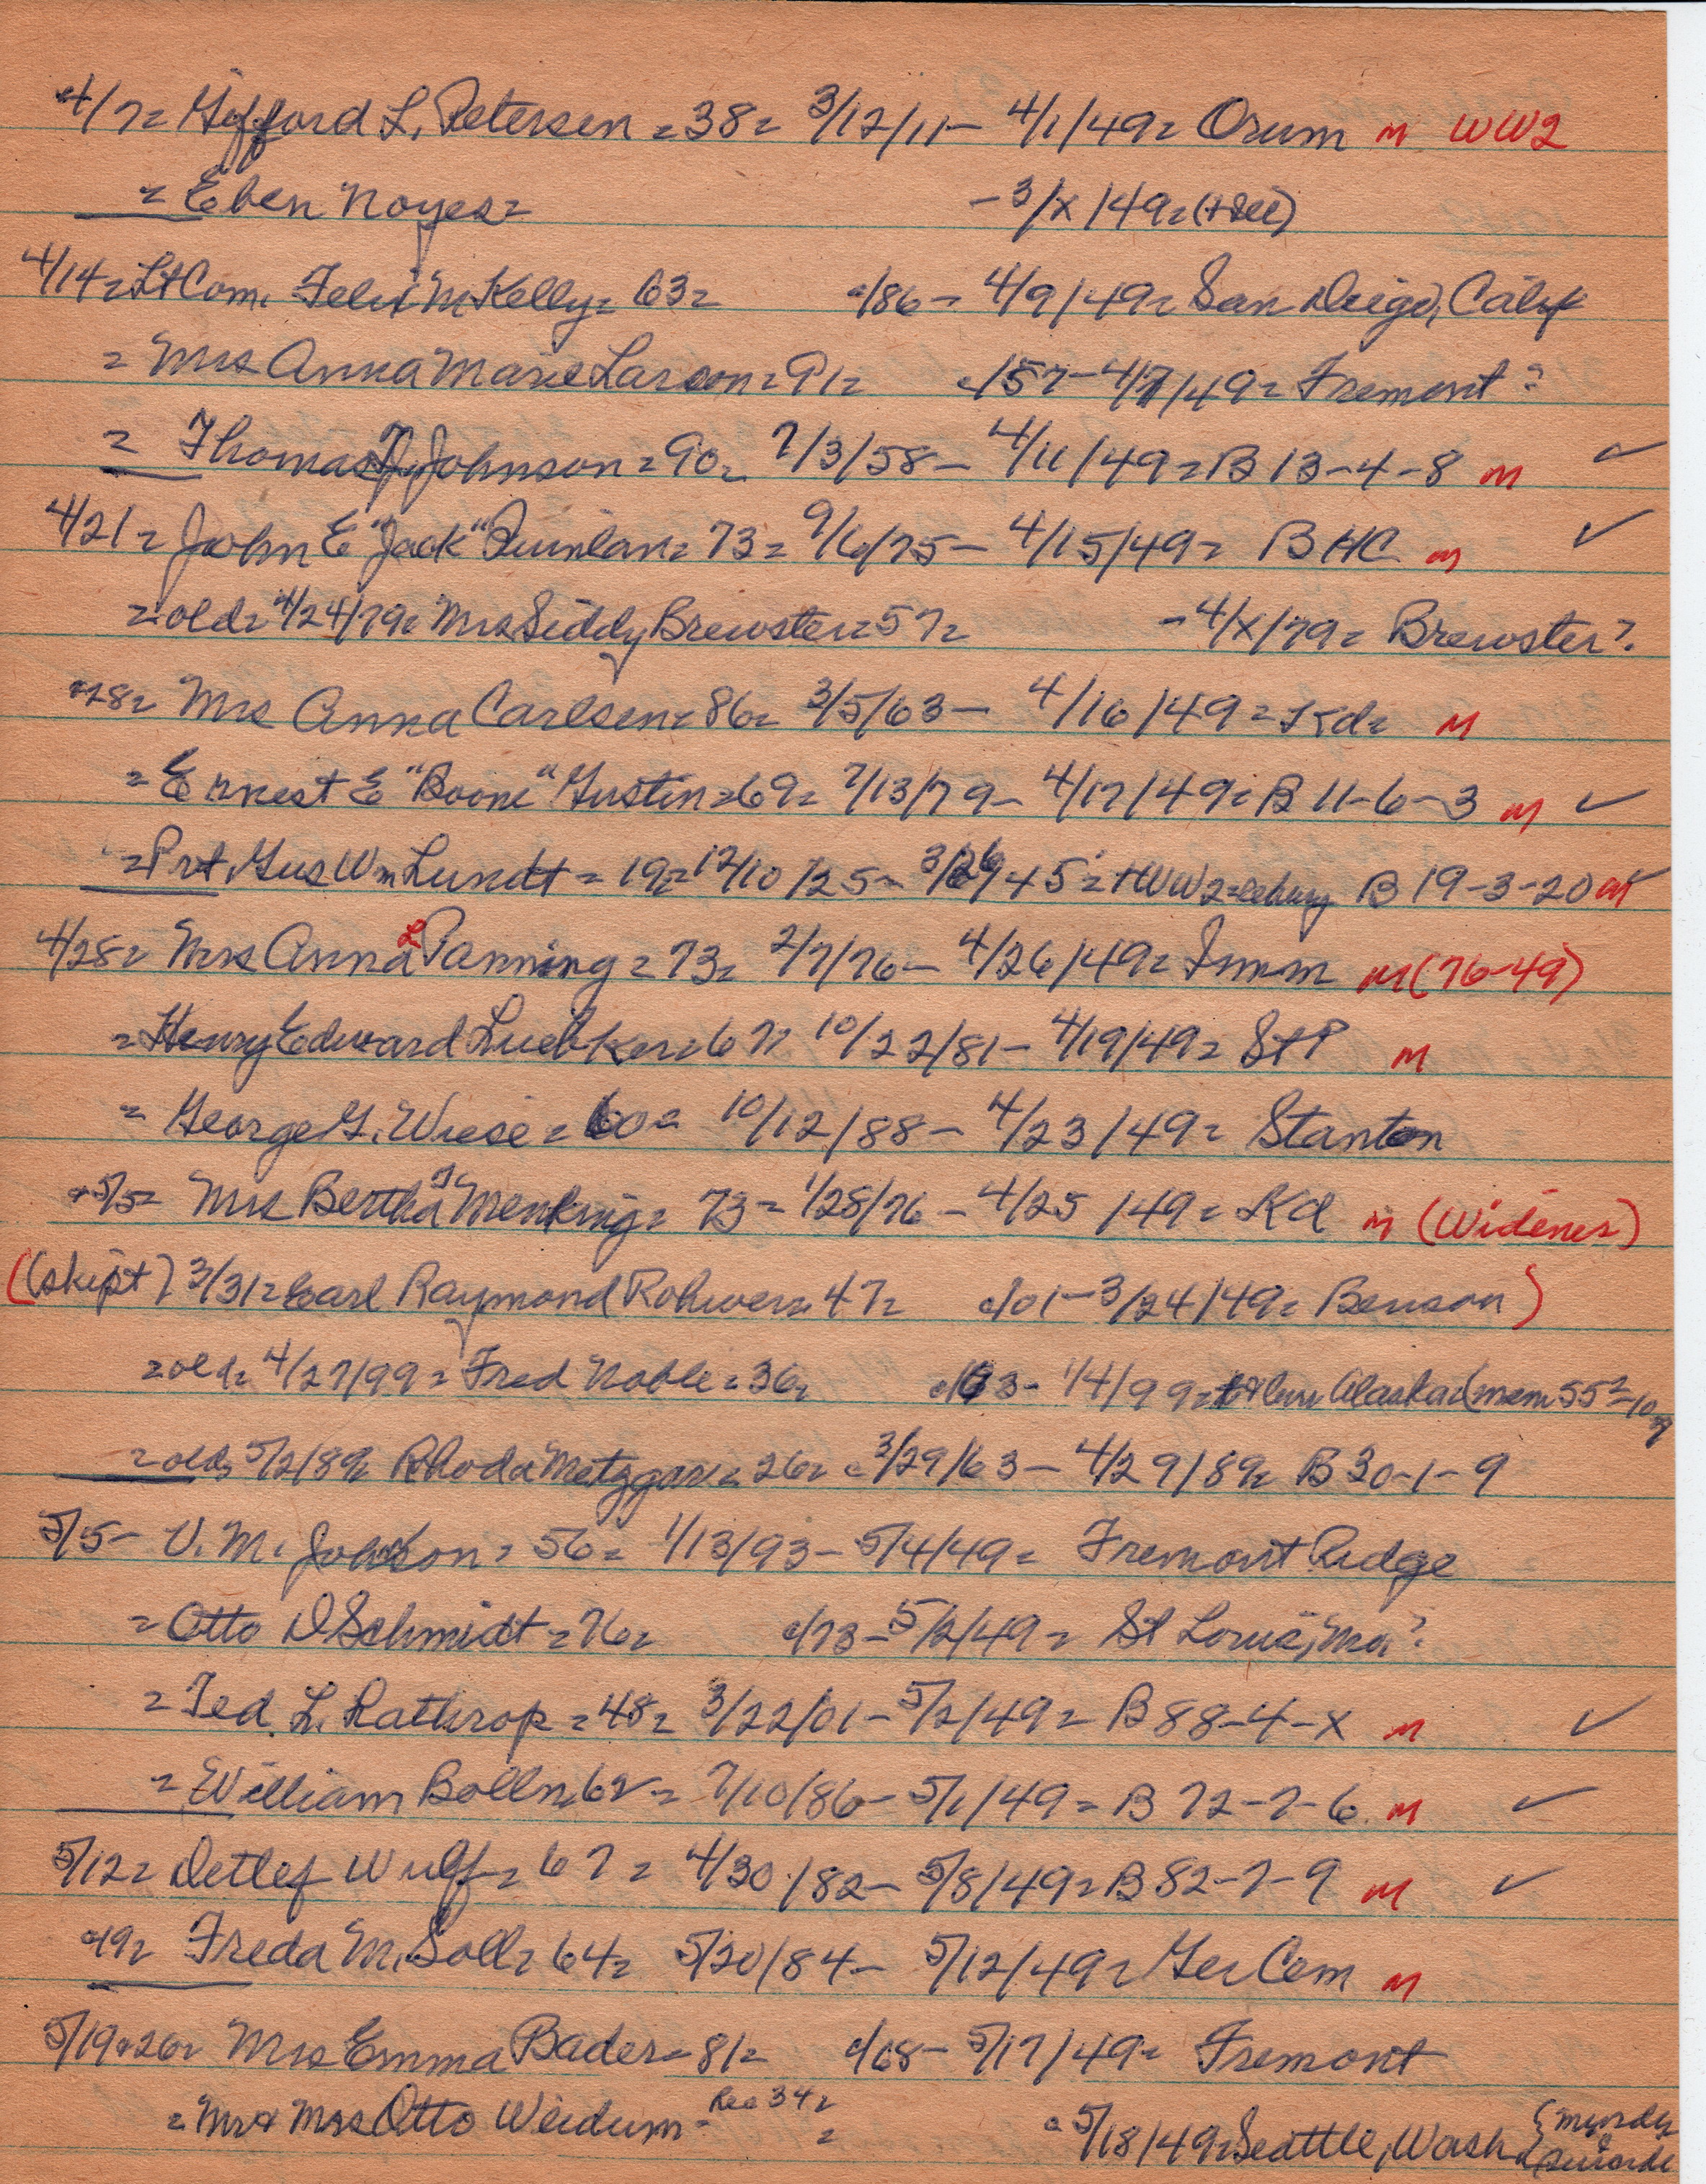 4/7= Gifford L. Petersen = 38= 3/12/11- 4/1/49= Orum m WW2
= Eben Noyes= -3/x/49=
4/14= Lt Com. Felix M Kelly= 63= c/86- 4/9/49= San Diego, Calif
= Mrs Anna Marie Larson = 91= c/57-4/7/49= Fremont?
= Thomas J. Johnson = 90= 7/3/58- 4/11/49= B 13-4-8 m ✓
4/21= John E "Jack" Quinlan= 73= 9/6/75- 4/15/49= B HC m ✓
= old= 4/24/79= Mrs Siddy Brewster= 57= -4/x/79= Brewster?
+28= Mrs Anna Carlsen= 86= 3/5/63- 4/16/49= Kd= m
= Ernest E "Boone" Gustin= 69= 7/13/79- 4/17/49= B 11-6-3 m ✓
= Prt. Gus Wm Lundt = 19= 12/10/25- 45= +WW2= B 19-3-20 m ✓
4/28= Mrs Anna L Panning = 73= 2/7/76- 4/26/49= Imm m (76-49)
= Henry Edward Luebker= 67= 10/22/81- 4/19/49= St P m
= George G. Wiese = 60= 10/12/88- 4/23/49= Stanton
+5/5= Mrs Bertha Menking= 73- 1/28/76- 4/25/49= Kd m (Widener)
((skipt) 3/31= Earl Raymond Rohwer= 47= c/01-3/24/49= Benson)
= old= 4/27/99= Fred Noble= 36= 1/4/99= Alaska (mem 55
= old= 5/2/89= Rhoda Metzgar= 26= c 3/29/63- 4/29/89= B 30-1-9
5/5- V. M. Johnson= 56= 1/13/93- 5/4/49= Fremont Ridge
= Otto D Schmidt= 76= c/73-5/2/49= St Louis, Mo?
= Ted. L. Lathrop = 48= 3/22/01- 5/2/49= B 88-4-x m ✓
= William Bolln 62= 7/10/86- 5/1/49= B 72-7-6 m ✓
5/12= Detlef Wulf= 67= 4/30/82- 5/8/49= B 82-7-9 m ✓
+19= Freda M. Soll= 64= 5/20/84- 5/12/49= Ger Cem m
5/19+26= Mrs Emma Bader= 81= c/68- 5/17/49= Fremont
= Mr + Mrs Otto Weidum= Res 34= = 5/18/49= Seattle, Wash {murder + suicide